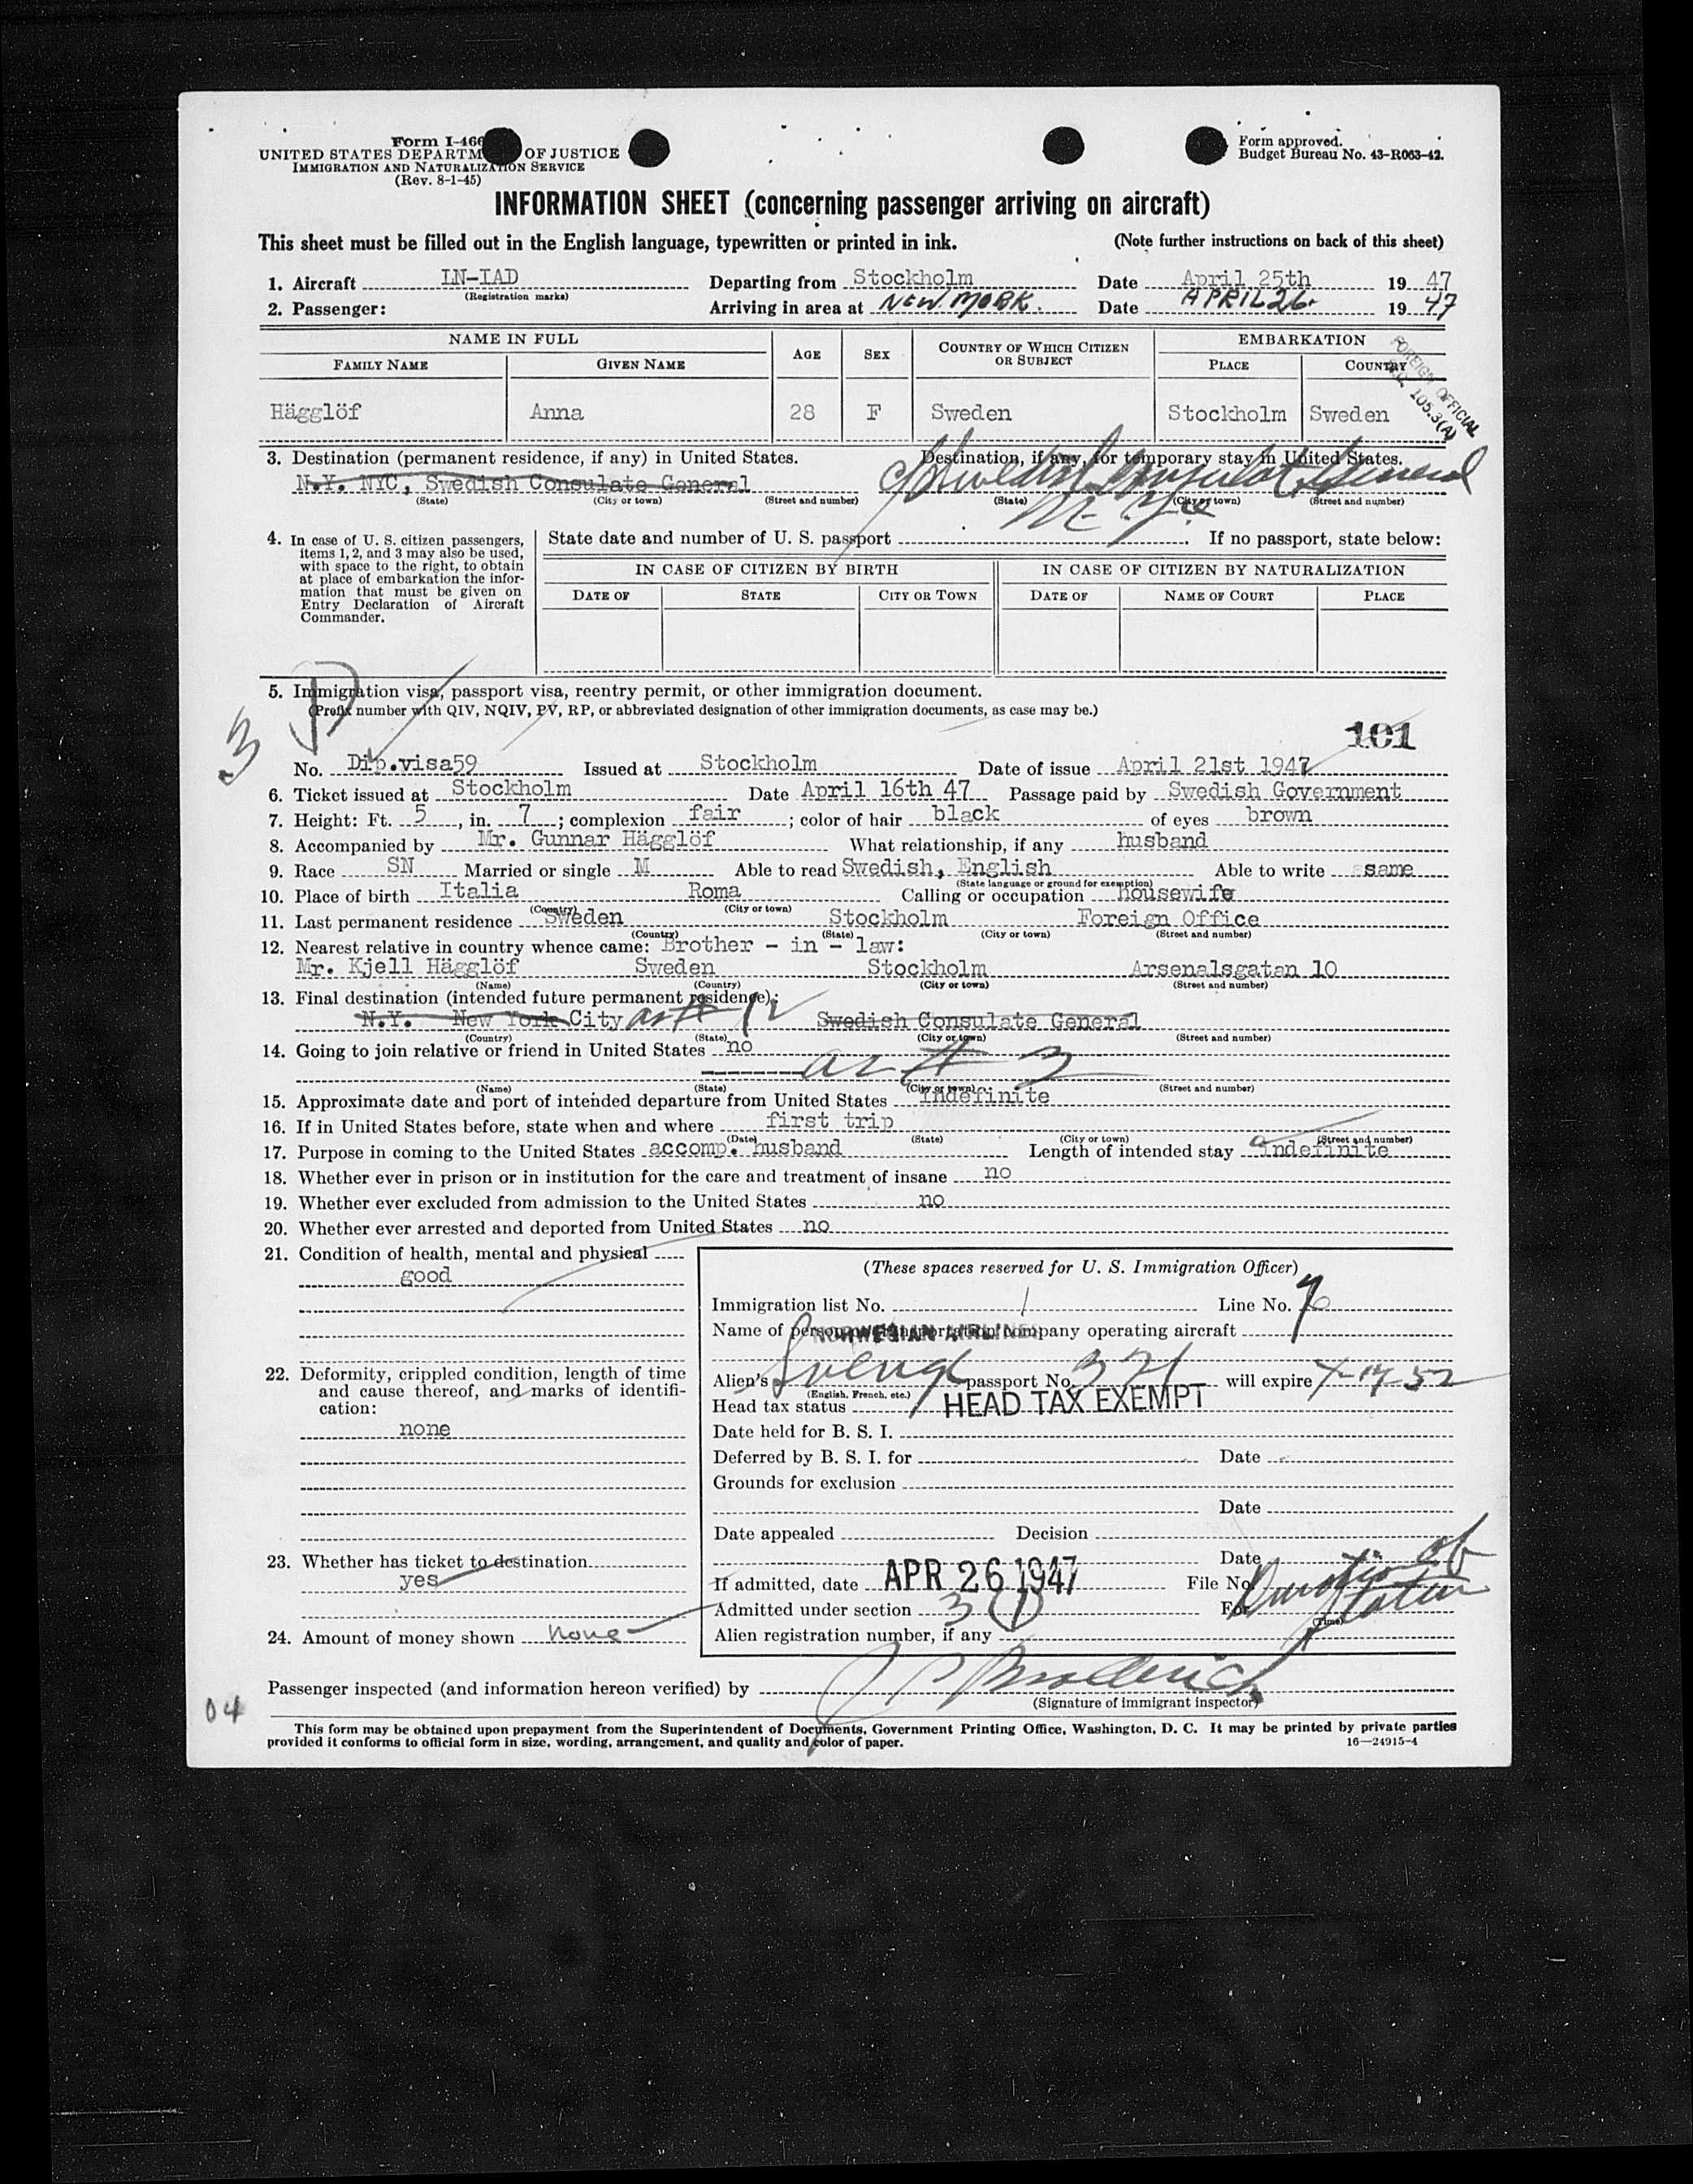 Form I-466
UNITED STATES DEPARTM OF JUSTICE
IMMIGRATION AND NATURALIZATION SERVICE
(Rev. 8-1-45)
Form approved.
Budget Bureau No. 43-R063-42.
INFORMATION SHEET (concerning passenger arriving on aircraft)
This sheet must be filled out in the English language, typewritten or printed in ink. (Note further instructions on back of this sheet)
1. Aircraft LN-IAD Departing from Stockholm Date April 25th 19 47
(Registration marks)
2. Passenger: Arriving in area at NEW YORK. Date APRIL 26. 19 47
NAME IN FULL AGE SEX COUNTRY OF WHICH CITIZEN OR SUBJECT EMBARKATION
FAMILY NAME GIVEN NAME PLACE COUNTRY
FOREIGN OFFICIAL
105.3(A)
Hägglöf Anna 28 F Sweden Stockholm Sweden
3. Destination (permanent residence, if any) in United States. Destination, if any, for temporary stay in United States.
N.Y. NYC, Swedish Consulate General Swedish Consulate General
(State) (City or town) (Street and number) (State) (City or town) (Street and number)
4. In case of U. S. citizen passengers, items 1, 2, and 3 may also be used, with space to the right, to obtain at place of embarkation the information that must be given on Entry Declaration of Aircraft Commander.
State date and number of U. S. passport . If no passport, state below:
IN CASE OF CITIZEN BY BIRTH IN CASE OF CITIZEN BY NATURALIZATION
DATE OF STATE CITY OR TOWN DATE OF NAME OF COURT PLACE
5. Immigration visa, passport visa, reentry permit, or other immigration document.
(Prefix number with QIV, NQIV, PV, RP, or abbreviated designation of other immigration documents, as case may be.)
3
101
No. Dip.visa59 Issued at Stockholm Date of issue April 21st 1947
6. Ticket issued at Stockholm Date April 16th 47 Passage paid by Swedish Government
7. Height: Ft. 5, in. 7; complexion fair; color of hair black of eyes brown
8. Accompanied by Mr. Gunnar Hägglöf What relationship, if any husband
9. Race SN Married or single M Able to read Swedish, English Able to write same
(State language or ground for exemption)
10. Place of birth Italia Roma Calling or occupation housewife
(Country) (City or town)
11. Last permanent residence Sweden Stockholm Foreign Office
(Country) (State) (City or town) (Street and number)
12. Nearest relative in country whence came: Brother - in - law:
Mr. Kjell Hägglöf Sweden Stockholm Arsenalsgatan 10
(Name) (Country) (City or town) (Street and number)
13. Final destination (intended future permanent residence):
N.Y. New York City as # 12 Swedish Consulate General
(Country) (State) (City or town) (Street and number)
14. Going to join relative or friend in United States no
as # 3
(Name) (State) (City or town) (Street and number)
15. Approximate date and port of intended departure from United States indefinite
16. If in United States before, state when and where first trip
(Date) (State) (City or town) (Street and number)
17. Purpose in coming to the United States accomp. husband Length of intended stay indefinite
18. Whether ever in prison or in institution for the care and treatment of insane no
19. Whether ever excluded from admission to the United States no
20. Whether ever arrested and deported from United States no
21. Condition of health, mental and physical
good
22. Deformity, crippled condition, length of time and cause thereof, and marks of identification:
none
23. Whether has ticket to destination
yes
24. Amount of money shown none
(These spaces reserved for U. S. Immigration Officer)
Immigration list No. 1 Line No.
Name of person or transportation company operating aircraft
NORWEGIAN AIRLINES
Alien's passport No. 321 will expire
(English, French, etc.)
Head tax status HEAD TAX EXEMPT
Date held for B. S. I.
Deferred by B. S. I. for Date
Grounds for exclusion
Date
Date appealed Decision
Date
If admitted, date APR 26 1947 File No.
Admitted under section 3 (1) For Duration of Status
(Time)
Alien registration number, if any
Passenger inspected (and information hereon verified) by Broderick
(Signature of immigrant inspector)
04
This form may be obtained upon prepayment from the Superintendent of Documents, Government Printing Office, Washington, D. C. It may be printed by private parties
provided it conforms to official form in size, wording, arrangement, and quality and color of paper. 16—24915-4